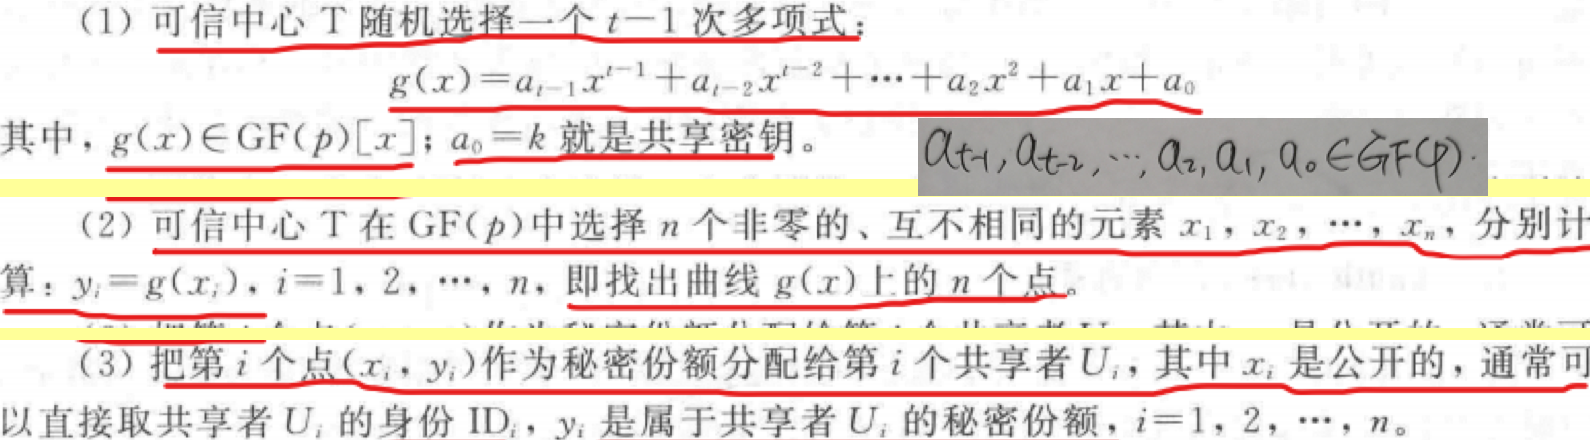 (1) 可信中心 T 随机选择一个 t－1 次多项式：
g(x)＝aₜ₋₁xᵗ⁻¹＋aₜ₋₂xᵗ⁻²＋⋯＋a₂x²＋a₁x＋a₀
其中，g(x)∈GF(p)[x]；a₀＝k 就是共享密钥。
aₜ₋₁, aₜ₋₂, ⋯, a₂, a₁, a₀∈GF(p).
(2) 可信中心 T 在 GF(p)中选择 n 个非零的、互不相同的元素 x₁，x₂，⋯，xₙ，分别计
算：yᵢ＝g(xᵢ)，i＝1，2，⋯，n，即找出曲线 g(x)上的 n 个点。
(3) 把第 i 个点(xᵢ，yᵢ)作为秘密份额分配给第 i 个共享者 Uᵢ，其中 xᵢ 是公开的，通常可
以直接取共享者 Uᵢ 的身份 IDᵢ，yᵢ 是属于共享者 Uᵢ 的秘密份额，i＝1，2，⋯，n。